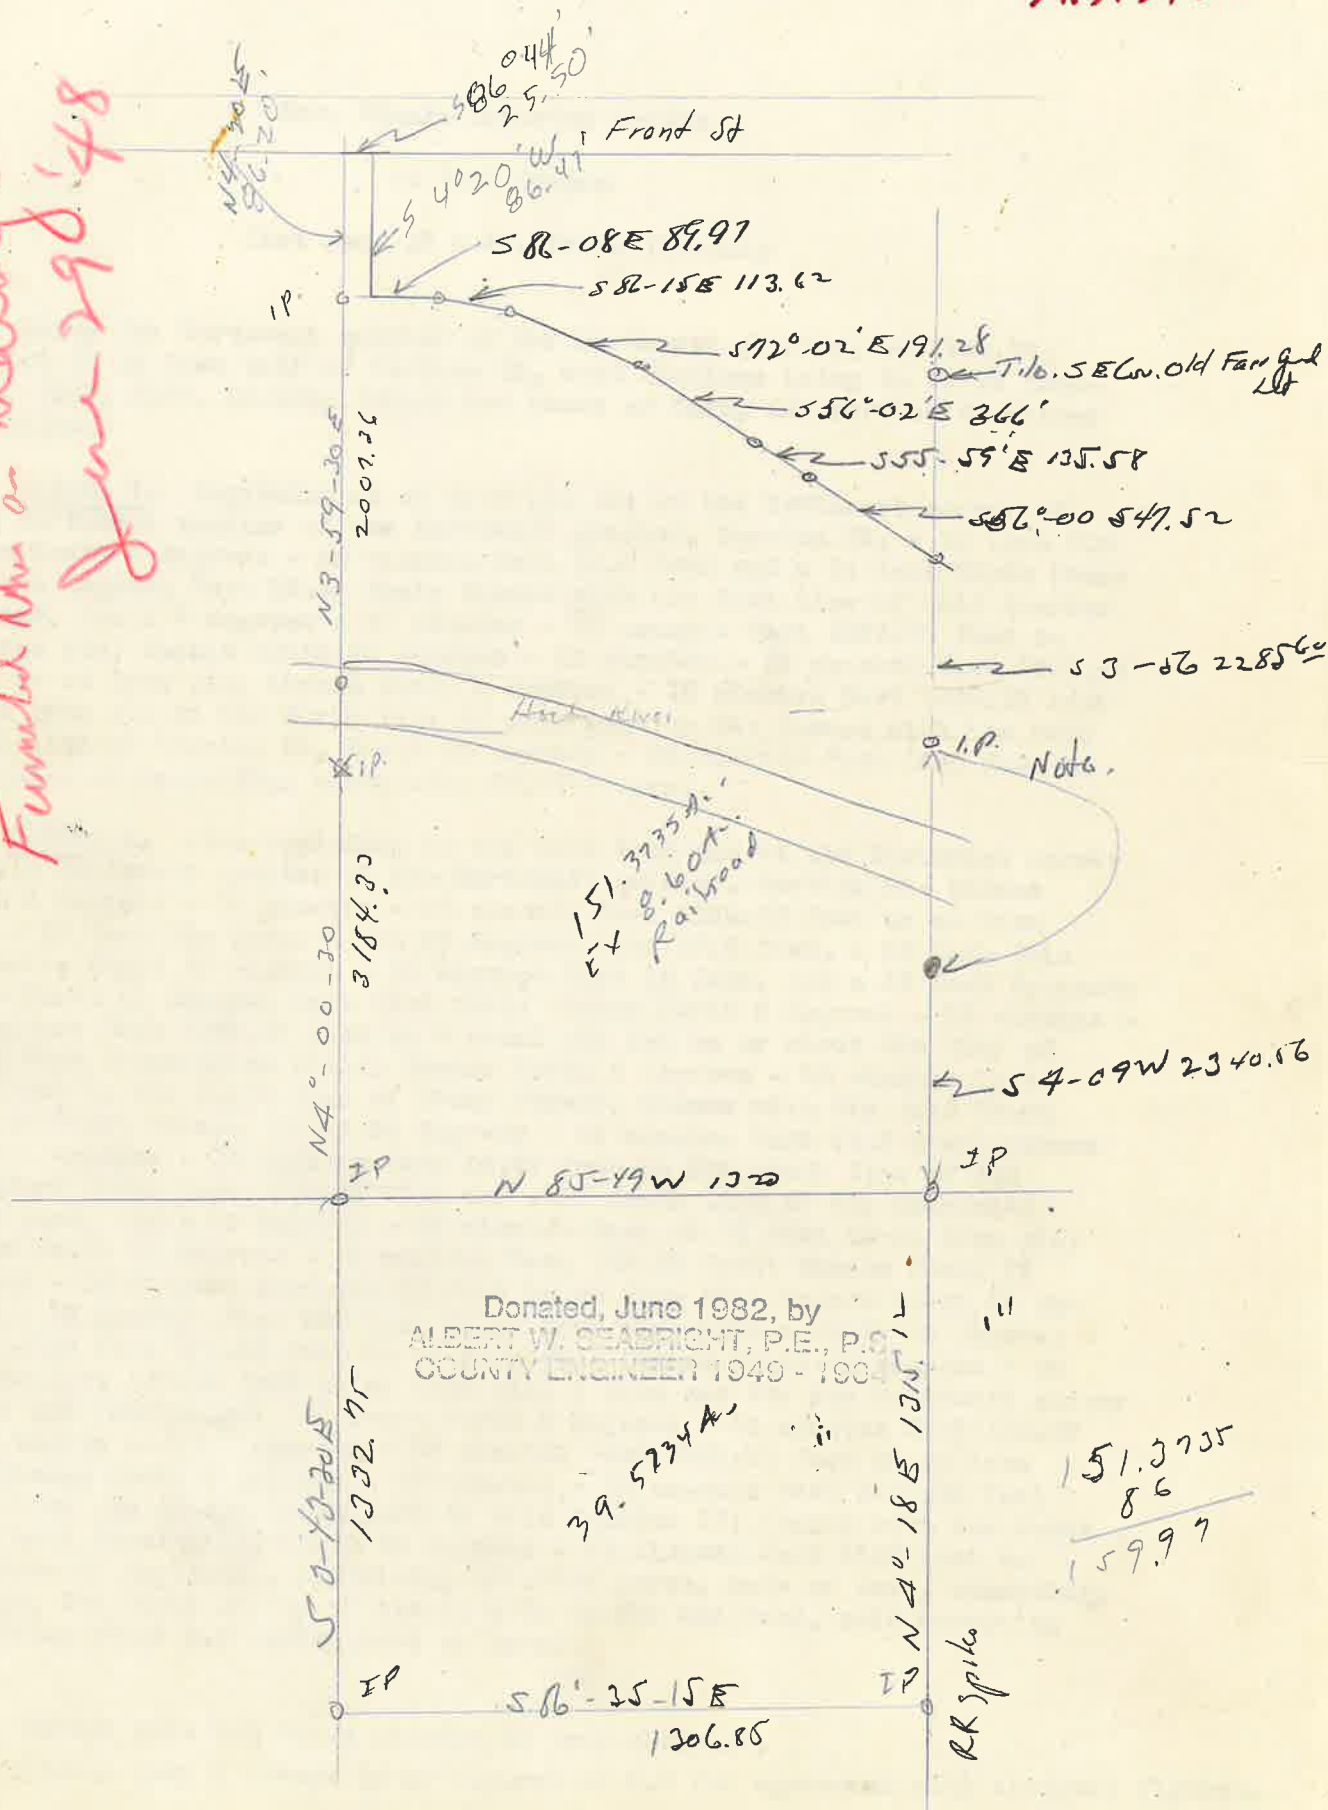 June 29' 48
N4-20E
86.20'
S86°44'
25.50'
Front St
S 4°20'W
86.47'
S86-08E 89.97
I.P.
S86-15E 113.62
S72°-02'E 191.28
T.10. SE Cor. Old Fair Grd
Lot
S56°-02'E 366'
S55-59'E 135.58
S56°-00 547.52
N3-59-30E
2007.36
S 3-56 2285.60
Hock. River
I.P.
I.P.
Note.
151.3735 A.
Ex 8.60 A.
Railroad
N4°-00-30
3184.33
S 4-09W 2340.56
IP
N 85-49W 1320
IP
Donated, June 1982, by
ALBERT W. SEABRIGHT, P.E., P.S.
COUNTY ENGINEER 1949 -
1332.75
39.5234 A.
N4°-18E 1315.12
151.3735
86
159.97
IP
S86°-35-15E
1306.85
IP
RR Spike